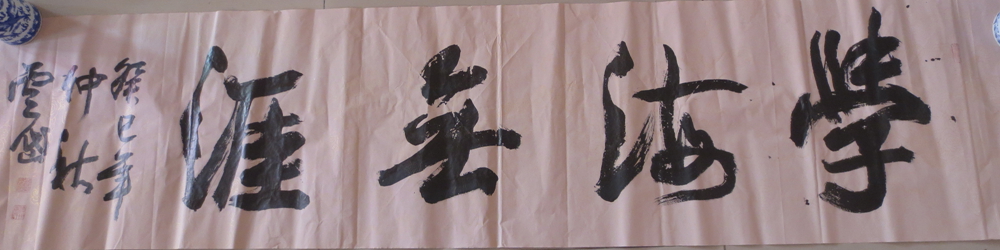 學海無涯
癸巳年
仲秋